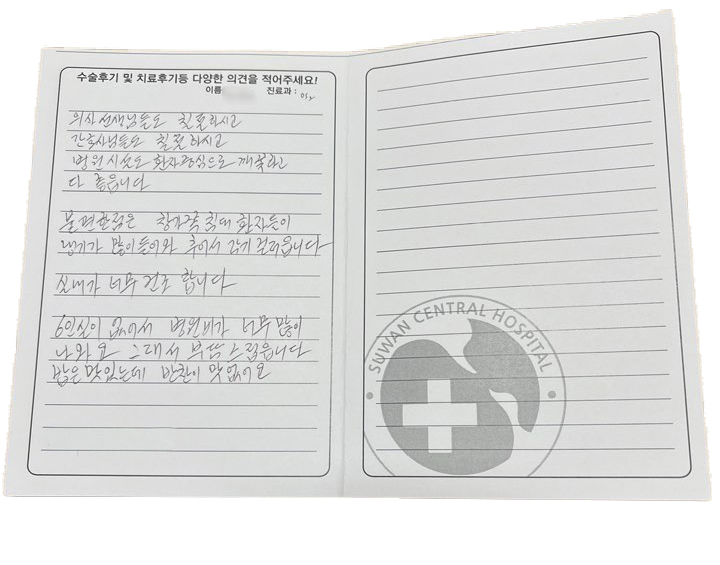 수술후기 및 치료후기등 다양한 의견을 적어주세요!
이름 진료과 : OS2
의사선생님들도 친절하시고
간호사님들도 친절하시고
병원시설도 환자중심으로 깨끗하고
다 좋읍니다
불편한점은 창가쪽 침대 환자들이
냉기가 많이들어와 추어서 감기 걸려읍니다
실내가 너무 건조 합니다
6인실이 없어서 병원비가 너무 많이
나와요 그래서 부담스럽읍니다
밥은 맛있는데 반찬이 맛없어요
SUWAN CENTRAL HOSPITAL